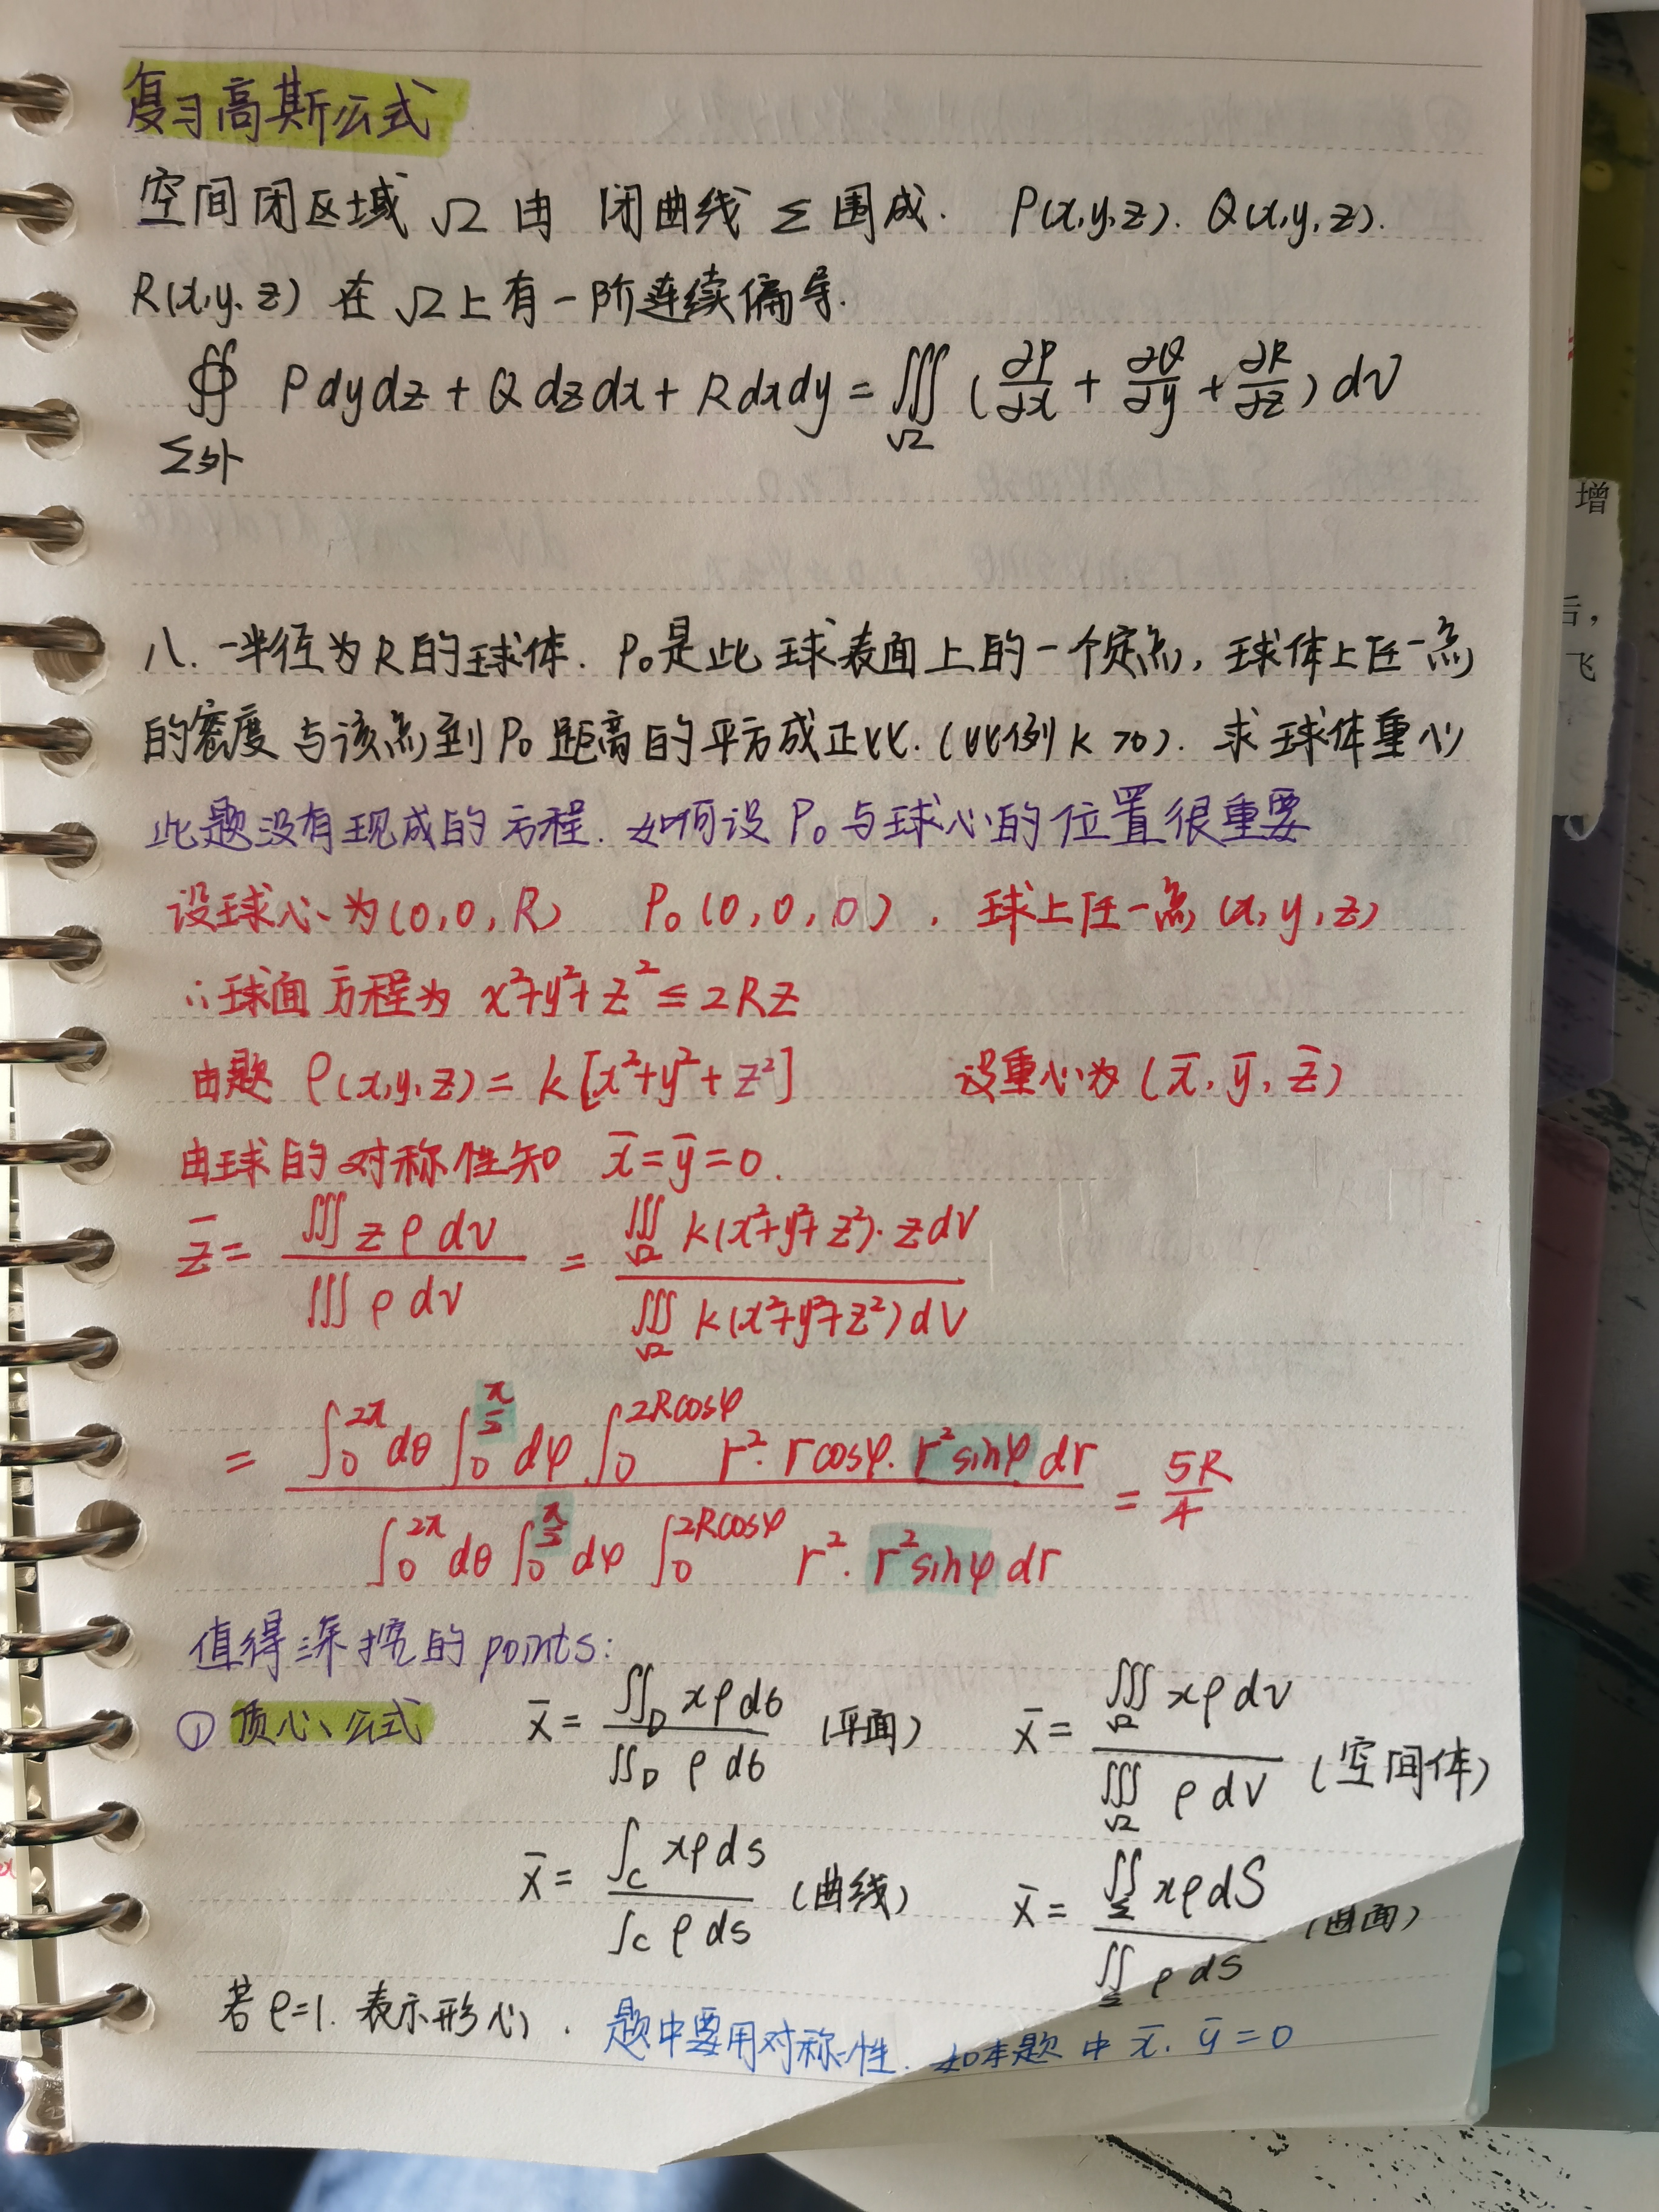 复习高斯公式
空间闭区域 Ω 由 闭曲线 Σ 围成. P(x,y,z). Q(x,y,z).
R(x,y,z) 在 Ω 上有一阶连续偏导.
∯_Σ外 P dydz + Q dzdx + R dxdy = ∭_Ω (∂P/∂x + ∂Q/∂y + ∂R/∂z) dV
八. 一半径为R的球体. P₀是此球表面上的一个定点, 球体上任一点
的密度与该点到P₀距离的平方成正比.(比例k>0). 求球体重心
此题没有现成的方程. 如何设P₀与球心的位置很重要
设球心为(0,0,R) P₀(0,0,0), 球上任一点(x,y,z)
∴球面方程为 x²+y²+z² ≤ 2RZ
由题 ρ(x,y,z) = k[x²+y²+z²] 设重心为(x̄, ȳ, z̄)
由球的对称性知 x̄=ȳ=0.
z̄ = ∭zρdv / ∭ρdv = ∭_Ω k(x²+y²+z²)·zdV / ∭_Ω k(x²+y²+z²)dV
= ∫₀^2π dθ ∫₀^π/2 dφ ∫₀^2Rcosφ r²·rcosφ·r²sinφ dr / ∫₀^2π dθ ∫₀^π/2 dφ ∫₀^2Rcosφ r²·r²sinφ dr = 5R/4
值得深挖的points:
① 质心公式 x̄ = ∬_D xρdσ / ∬_D ρdσ (平面) x̄ = ∭_Ω xρdv / ∭_Ω ρdV (空间体)
x̄ = ∫_C xρds / ∫_C ρds (曲线) x̄ = ∬_Σ xρdS / ∬_Σ ρdS (曲面)
若ρ=1. 表示形心. 题中要用对称性. 如本题中 x̄. ȳ=0
增
后,
飞